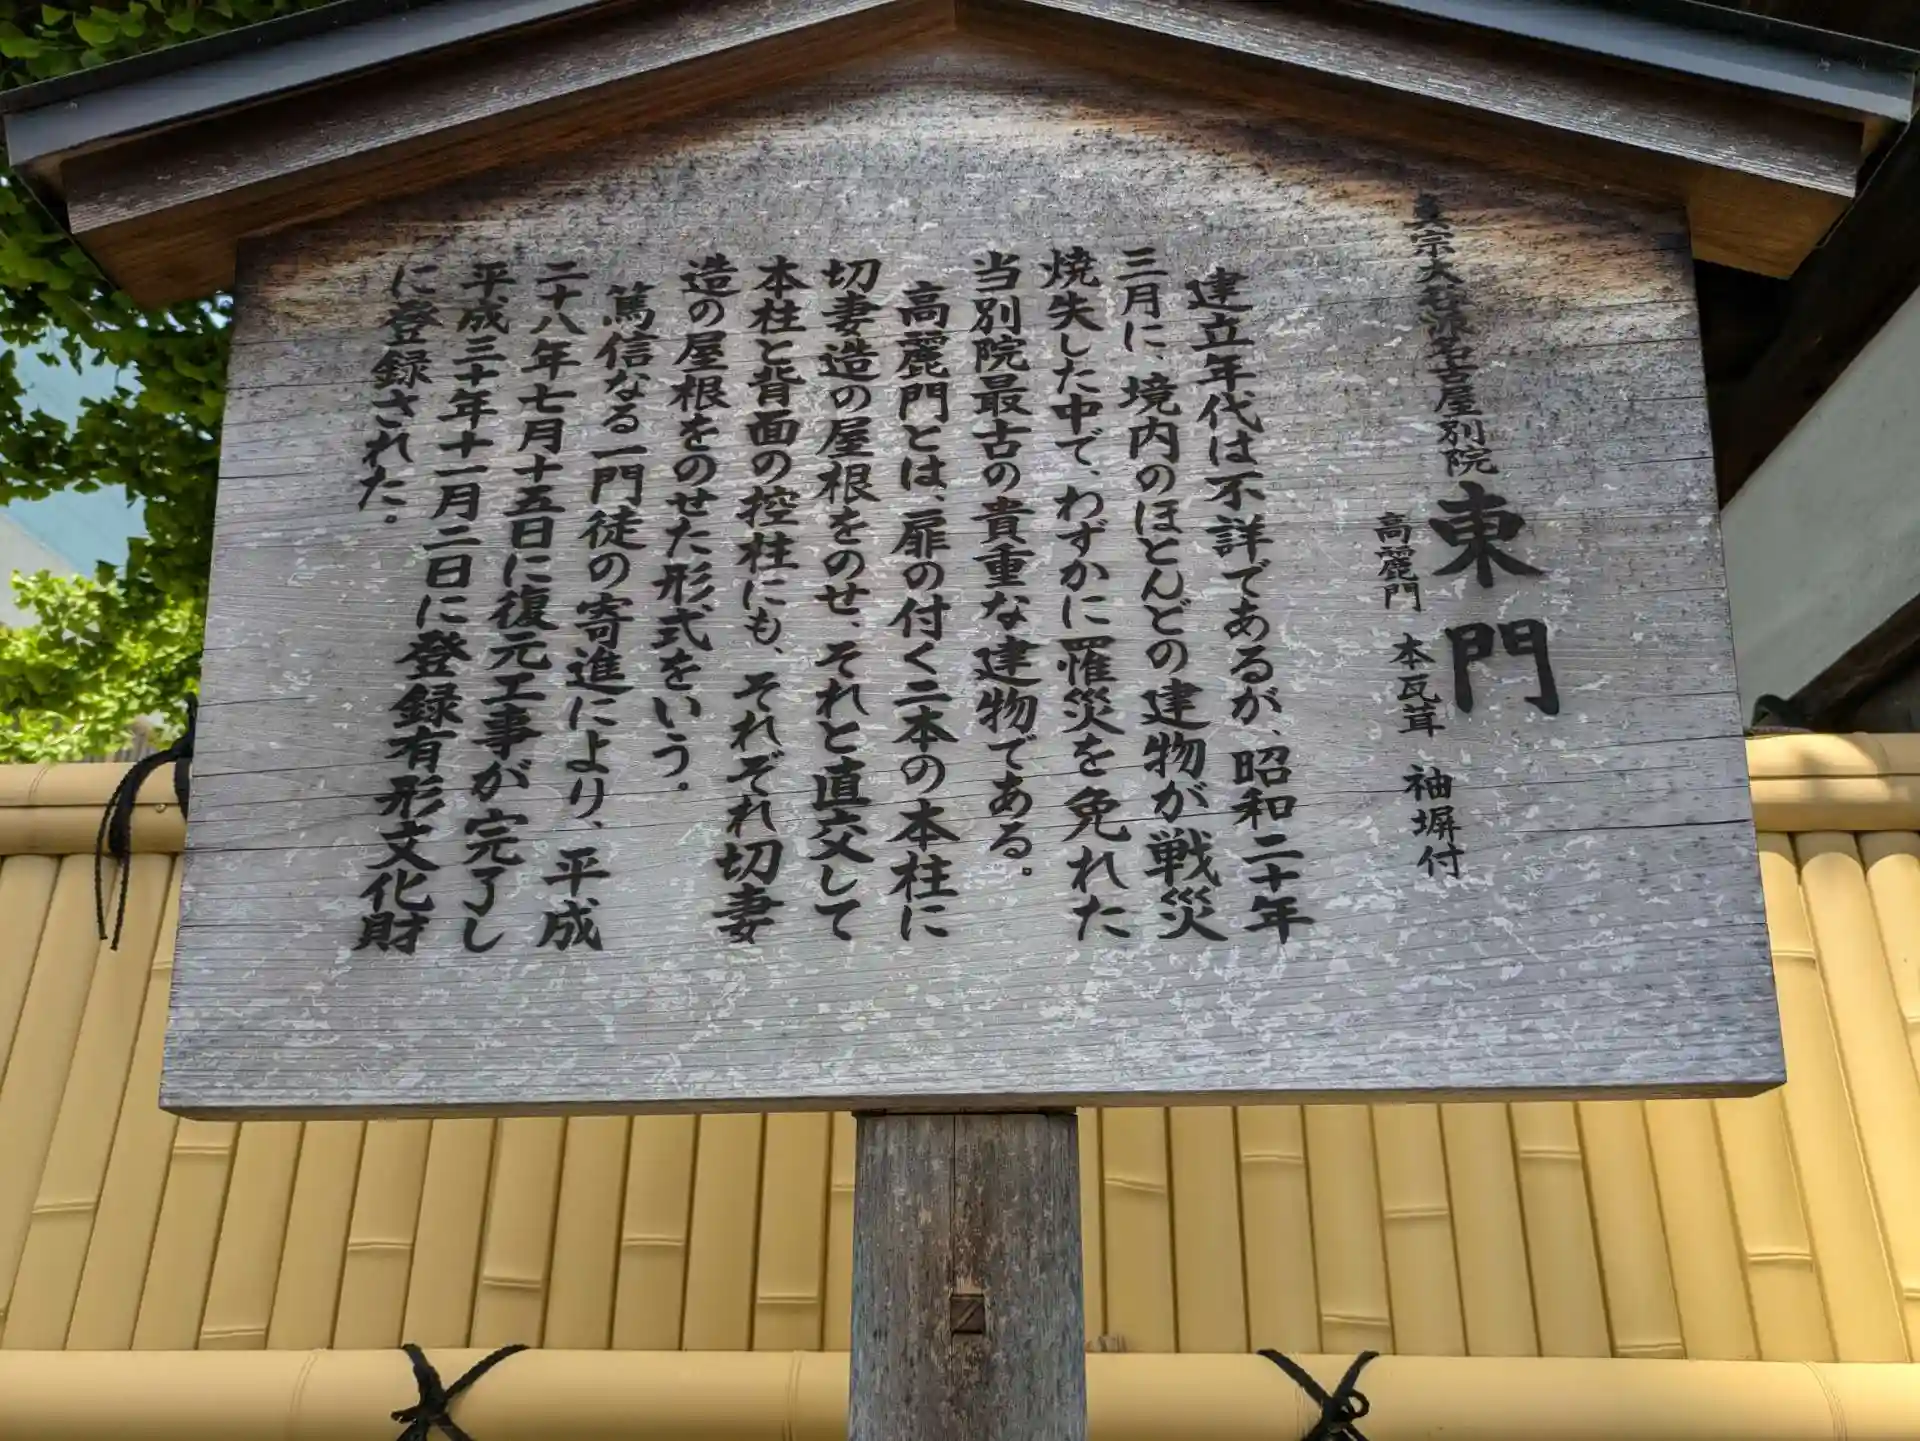 真宗大谷派名古屋別院 東門
高麗門 本瓦葺 袖塀付
建立年代は不詳であるが、昭和二十年
三月に、境内のほとんどの建物が戦災
焼失した中で、わずかに罹災を免れた
当別院最古の貴重な建物である。
高麗門とは、扉の付く二本の本柱に
切妻造の屋根をのせ、それと直交して
本柱と背面の控柱にも、それぞれ切妻
造の屋根をのせた形式をいう。
篤信なる一門徒の寄進により、平成
二十八年七月十五日に復元工事が完了し
平成三十年十一月二日に登録有形文化財
に登録された。